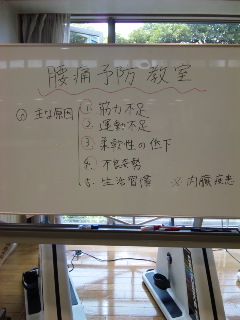 腰痛予防教室
◎ 主な原因
1. 筋力不足
2. 運動不足
3. 柔軟性の低下
4. 不良姿勢
5. 生活習慣 ※内臓疾患